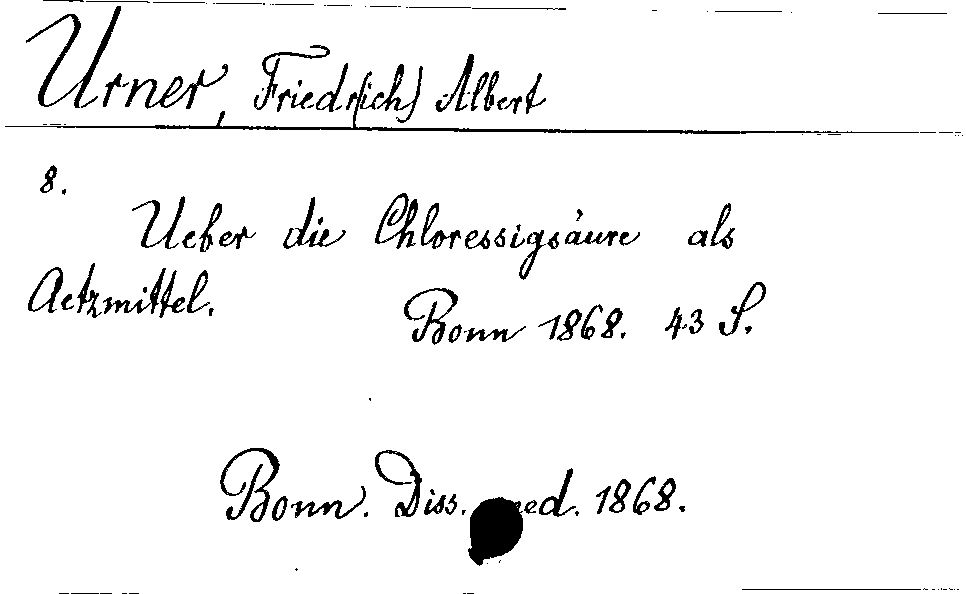 Urner, Friedr(ich) Albert
8.
Ueber die Chloressigsäure als
Aetzmittel.
Bonn 1868. 43 S.
Bonn. Diss. med. 1868.